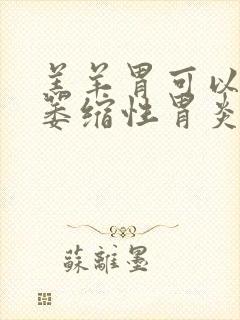 羊胃可以
萎缩性胃炎
蘇離墨